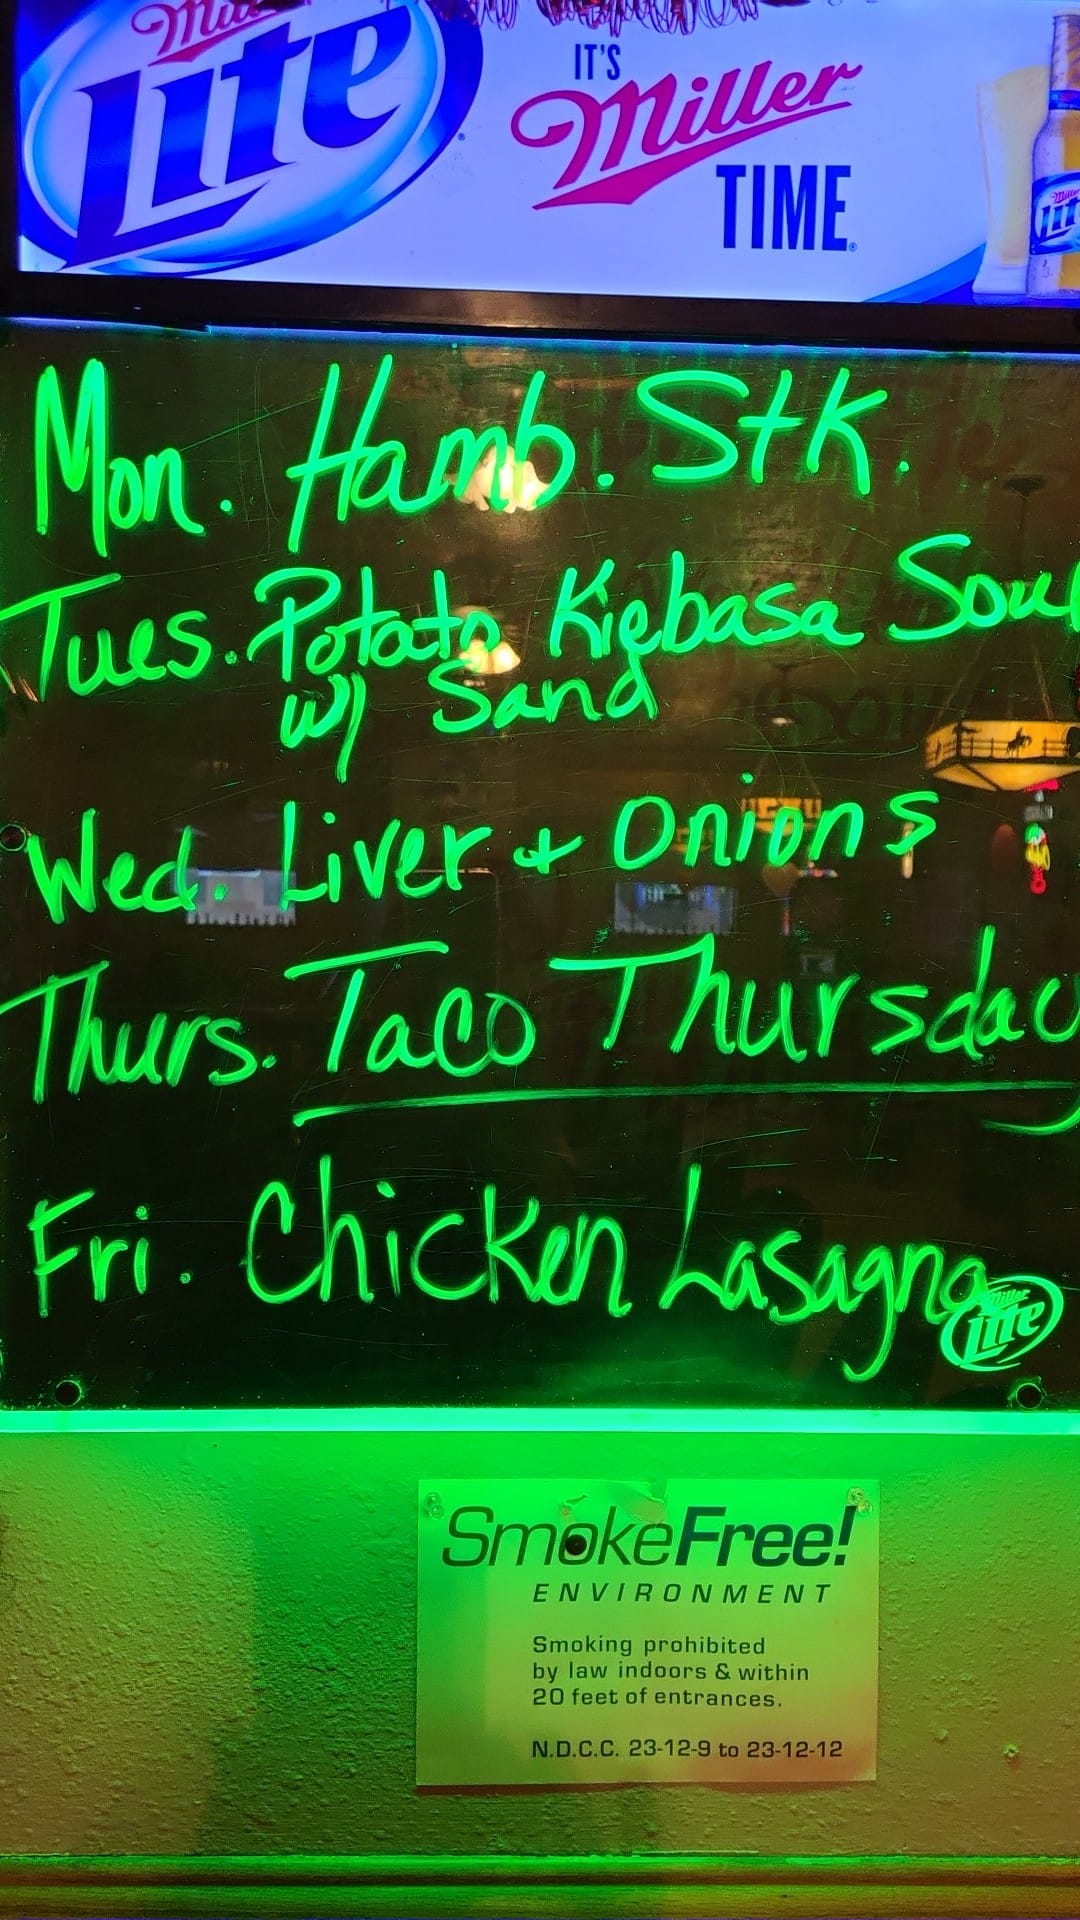 Miller
Lite
IT'S
Miller
TIME
Mon. Hamb. Stk.
Tues. Potato Kiebasa Soup
w/ Sand
Wed. Liver + Onions
Thurs. Taco Thursday
Fri. Chicken Lasagna
Miller
Lite
SmokeFree!
ENVIRONMENT
Smoking prohibited
by law indoors & within
20 feet of entrances.
N.D.C.C. 23-12-9 to 23-12-12